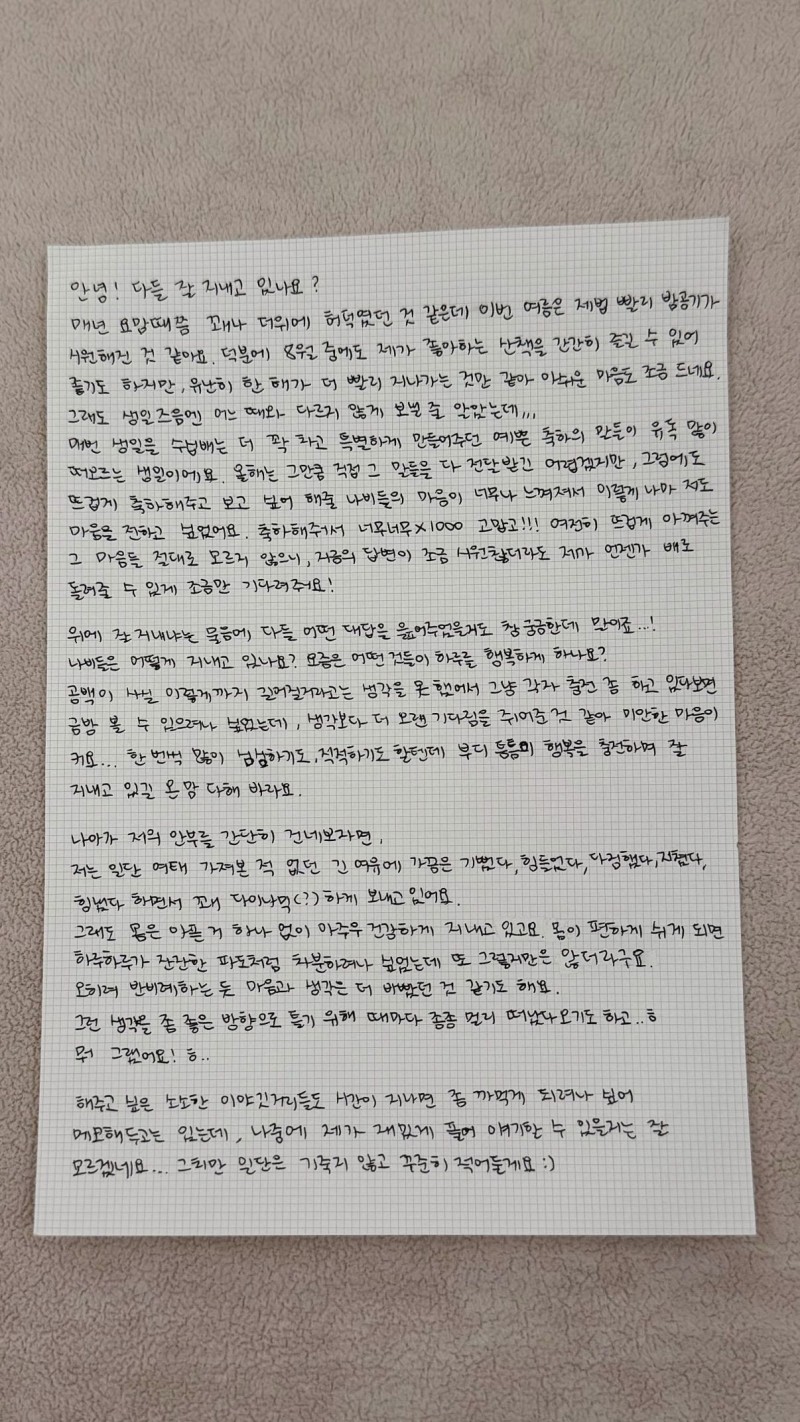 안녕! 다들 잘 지내고 있나요?
매년 요맘때쯤 꽤나 더위에 허덕였던 것 같은데 이번 여름은 제법 빨리 밤공기가
시원해진 것 같아요. 덕분에 8월 중에도 제가 좋아하는 산책을 간간히 즐길 수 있어
좋기도 하지만, 유난히 한 해가 더 빨리 지나가는 것만 같아 아쉬운 마음도 조금 드네요.
그래도 생일즈음엔 어느 때와 다르지 않게 보낼 줄 알았는데,,,
매번 생일을 수십배는 더 꽉 차고 특별하게 만들어주던 예쁜 축하의 말들이 유독 많이
떠오르는 생일이에요. 올해는 그만큼 직접 그 말들을 다 전달받긴 어렵겠지만, 그럼에도
뜨겁게 축하해주고 보고 싶어 해줄 나비들의 마음이 너무나 느껴져서 이렇게나마 저도
마음을 전하고 싶었어요. 축하해줘서 너무너무×1000 고맙고!!! 여전히 뜨겁게 아껴주는
그 마음들 절대로 모르지 않으니, 지금의 답변이 조금 시원찮더라도 제가 언젠가 배로
돌려줄 수 있게 조금만 기다려줘요!
위에 잘 지내냐는 물음에 다들 어떤 대답을 읊어주었을지도 참 궁금한데 말이죠...!
나비들은 어떻게 지내고 있나요? 요즘은 어떤 것들이 하루를 행복하게 하나요?
공백이 사실 이렇게까지 길어질거라고는 생각을 못 했어서 그냥 각자 충전 좀 하고 있다보면
금방 볼 수 있으려나 싶었는데, 생각보다 더 오랜 기다림을 쥐어준 것 같아 미안한 마음이
커요... 한 번씩 많이 심심하기도, 적적하기도 할텐데 부디 틈틈이 행복을 충전하며 잘
지내고 있길 온 맘 다해 바라요.
나아가 저의 안부를 간단히 건네보자면,
저는 일단 여태 가져본 적 없던 긴 여유에 가끔은 기뻤다, 힘들었다, 다정했다, 지쳤다,
힘냈다 하면서 꽤 다이나믹(??)하게 보내고 있어요.
그래도 몸은 아픈 거 하나 없이 아주우 건강하게 지내고 있고요. 몸이 편하게 쉬게 되면
하루하루가 잔잔한 파도처럼 차분하려나 싶었는데 또 그렇지만은 않더라구요.
오히려 반비례하는 듯 마음과 생각은 더 바빴던 것 같기도 해요.
그런 생각을 좀 좋은 방향으로 틀기 위해 때마다 종종 멀리 떠났다 오기도 하고..ㅎ
뭐 그랬어요! ㅎ..
해주고 싶은 소소한 이야깃거리들도 시간이 지나면 좀 까먹게 되려나 싶어
메모해두고는 있는데, 나중에 제가 재밌게 풀어 얘기할 수 있을지는 잘
모르겠네요... 그치만 일단은 기죽지 않고 꾸준히 적어둘게요 :)